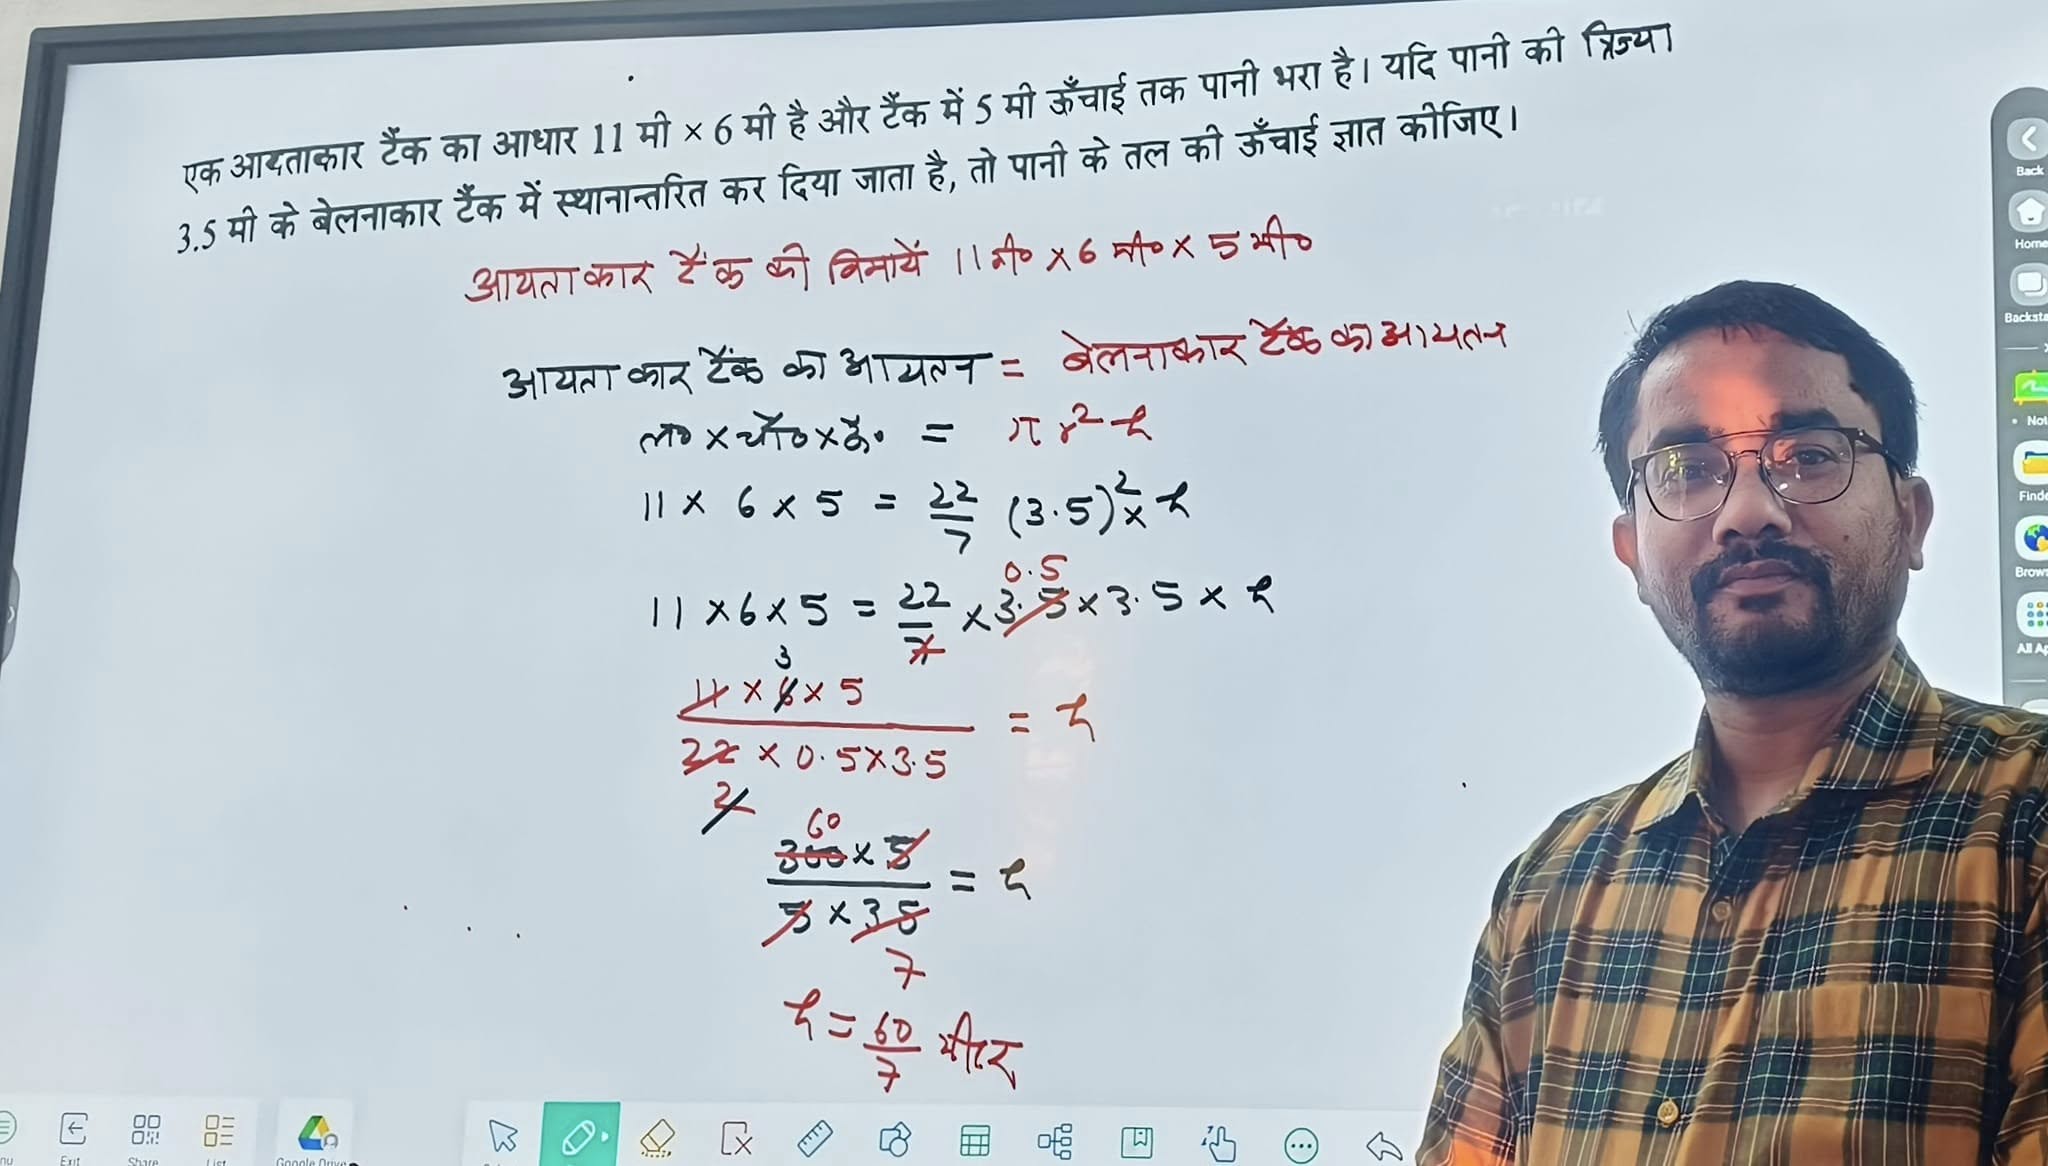 एक आयताकार टैंक का आधार 11 मी × 6 मी है और टैंक में 5 मी ऊँचाई तक पानी भरा है। यदि पानी की त्रिज्या
3.5 मी के बेलनाकार टैंक में स्थानान्तरित कर दिया जाता है, तो पानी के तल की ऊँचाई ज्ञात कीजिए।
आयताकार टैंक की विमायें 11 मी० × 6 मी० × 5 मी०
आयताकार टैंक का आयतन = बेलनाकार टैंक का आयतन
ल० × चौ० × ऊँ० = π r² h
11 × 6 × 5 = 22/7 (3.5)² × h
0.5
11 × 6 × 5 = 22/7 × 3.5 × 3.5 × h
3
11 × 6 × 5 / 22 × 0.5 × 3.5 = h
2
60
300 × 5 / 5 × 35 = h
7
h = 60/7 मीटर
Back
Home
Backsta
Not
Finde
Brows
All Ap
nu
Exit
Share
List
Google Drive